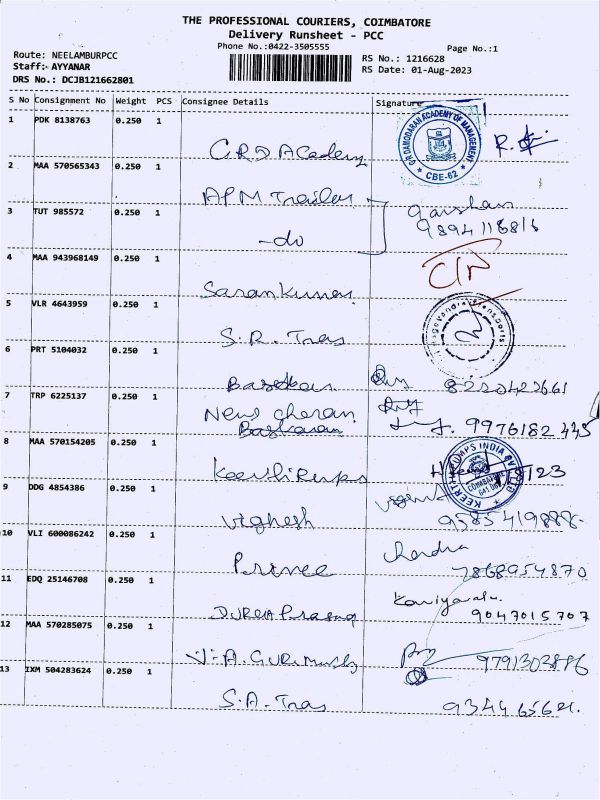 THE PROFESSIONAL COURIERS, COIMBATORE
Delivery Runsheet - PCC
Phone No.:0422-3505555
Page No.:1
Route: NEELAMBURPCC
Staff:- AYYANAR
DRS No.: DCJB121662801
RS No.: 1216628
RS Date: 01-Aug-2023
S No Consignment No Weight PCS Consignee Details Signature
1 PDK 8138763 0.250 1
GRD Academy
G.R DAMODARAN ACADEMY OF MANAGEMENT
* CBE-62 *
2 MAA 570565343 0.250 1
APM Trailer
3 TUT 985572 0.250 1
-do
4 MAA 943968149 0.250 1
Saran Kumar
5 VLR 4643959 0.250 1
S.R. Tras
6 PRT 5104032 0.250 1
Baskar 8220422661
7 TRP 6225137 0.250 1
New charan 9976182445
Baskaran
8 MAA 570154205 0.250 1
KEERTHI PUMPS INDIA PVT LTD
9 DDG 4854386 0.250 1
Vighesh 9585419888
10 VLI 600086242 0.250 1
Prince Chandra
7868954870
11 EDQ 25146708 0.250 1
DURGA Prasag
9047015707
12 MAA 570285075 0.250 1
V.A. GURU Murthy 9791302886
13 IXM 504283624 0.250 1
S.A. Tras